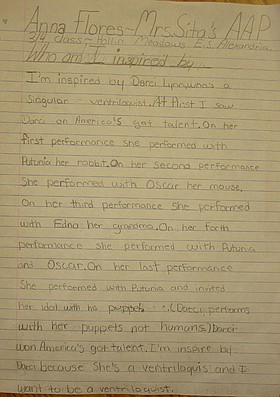 Anna Flores-Mrs.Sita's AAP
3rd class-Hollin Meadows E.S. Alexandria
Who am I inspired by...
I'm inspired by Darci Lynn,who's a
singular ventriloquist.At first I saw
Darci on America's got talent.On her
first performance she performed with
Petunia her rabbit.On her second performance
She performed with Oscar her mouse.
On her third performance she performed
with Edna her grandma.On her forth
performance she performed with Petunia
and Oscar.On her last performance
She performed with Petunia and invited
her idol with his puppets (Darci performs
with her puppets not humans.)Darci
won America's got talent.I'm inspire by
Darci because she's a ventriloquis and I
want to be a ventriloquist.